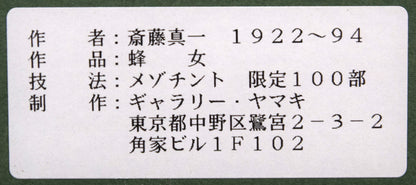 作　　者：斎藤真一　１９２２～９４
作　　品：蜂　　女
技　　法：メゾチント　限定１００部
制　　作：ギャラリー・ヤマキ
東京都中野区鷺宮２－３－２
角家ビル１Ｆ１０２